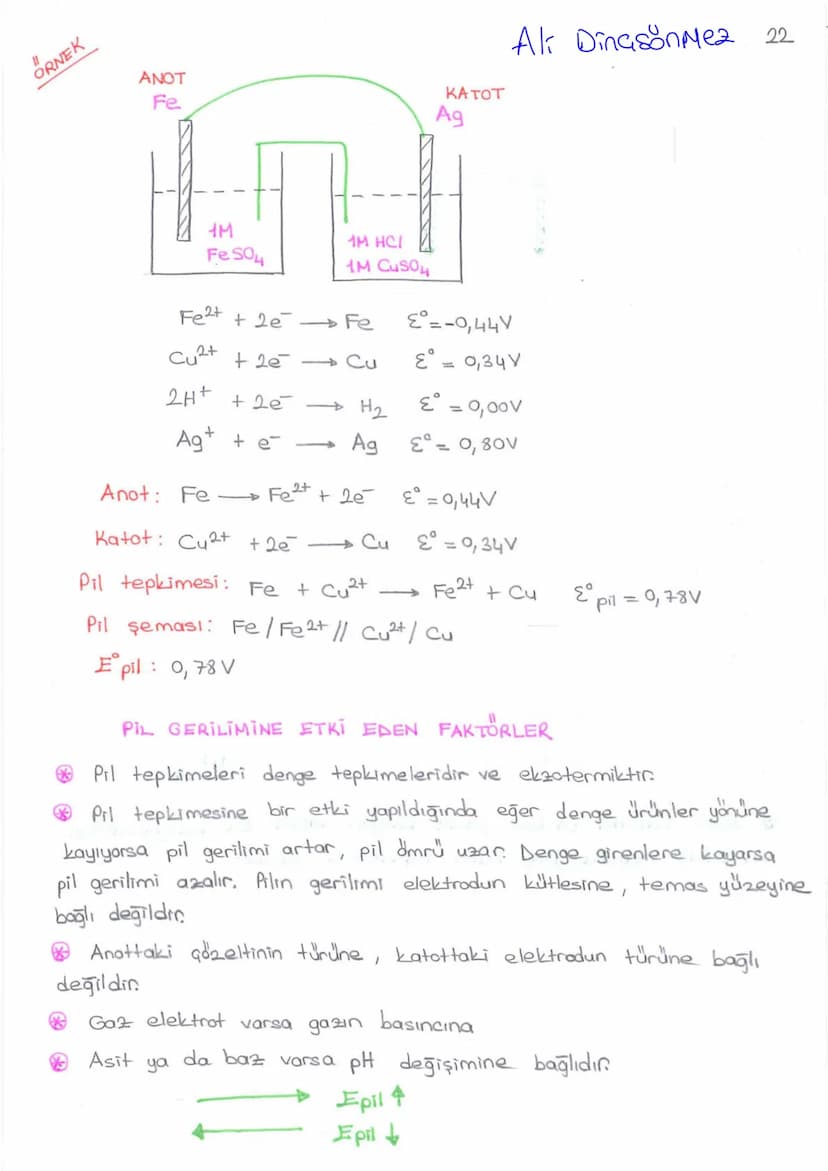 Ali DinçsönMez 22
ÖRNEK
ANOT
Fe
KATOT
Ag
1M
FeSO₄
1M HCl
1M CuSO₄
Fe²⁺ + 2e⁻ → Fe ε° = -0,44V
Cu²⁺ + 2e⁻ → Cu ε° = 0,34V
2H⁺ + 2e⁻ → H₂ ε° = 0,00V
Ag⁺ + e⁻ → Ag ε° = 0,80V
Anot: Fe → Fe²⁺ + 2e⁻ ε° = 0,44V
Katot: Cu²⁺ + 2e⁻ → Cu ε° = 0,34V
Pil tepkimesi: Fe + Cu²⁺ → Fe²⁺ + Cu ε°pil = 0,78V
Pil şeması: Fe/Fe²⁺// Cu²⁺/ Cu
E°pil : 0,78 V
PİL GERİLİMİNE ETKİ EDEN FAKTÖRLER
* Pil tepkimeleri denge tepkimeleridir ve ekzotermiktir.
* Pil tepkimesine bir etki yapıldığında eğer denge ürünler yönüne
kayıyorsa pil gerilimi artar, pil ömrü uzar. Denge girenlere kayarsa
pil gerilimi azalır. Pilin gerilimi elektrodun kütlesine, temas yüzeyine
bağlı değildir.
* Anottaki çözeltinin türüne, katottaki elektrodun türüne bağlı
değildir.
* Gaz elektrot varsa gazın basıncına
* Asit ya da baz varsa pH değişimine bağlıdır.
→ Epil ↑
← Epil ↓